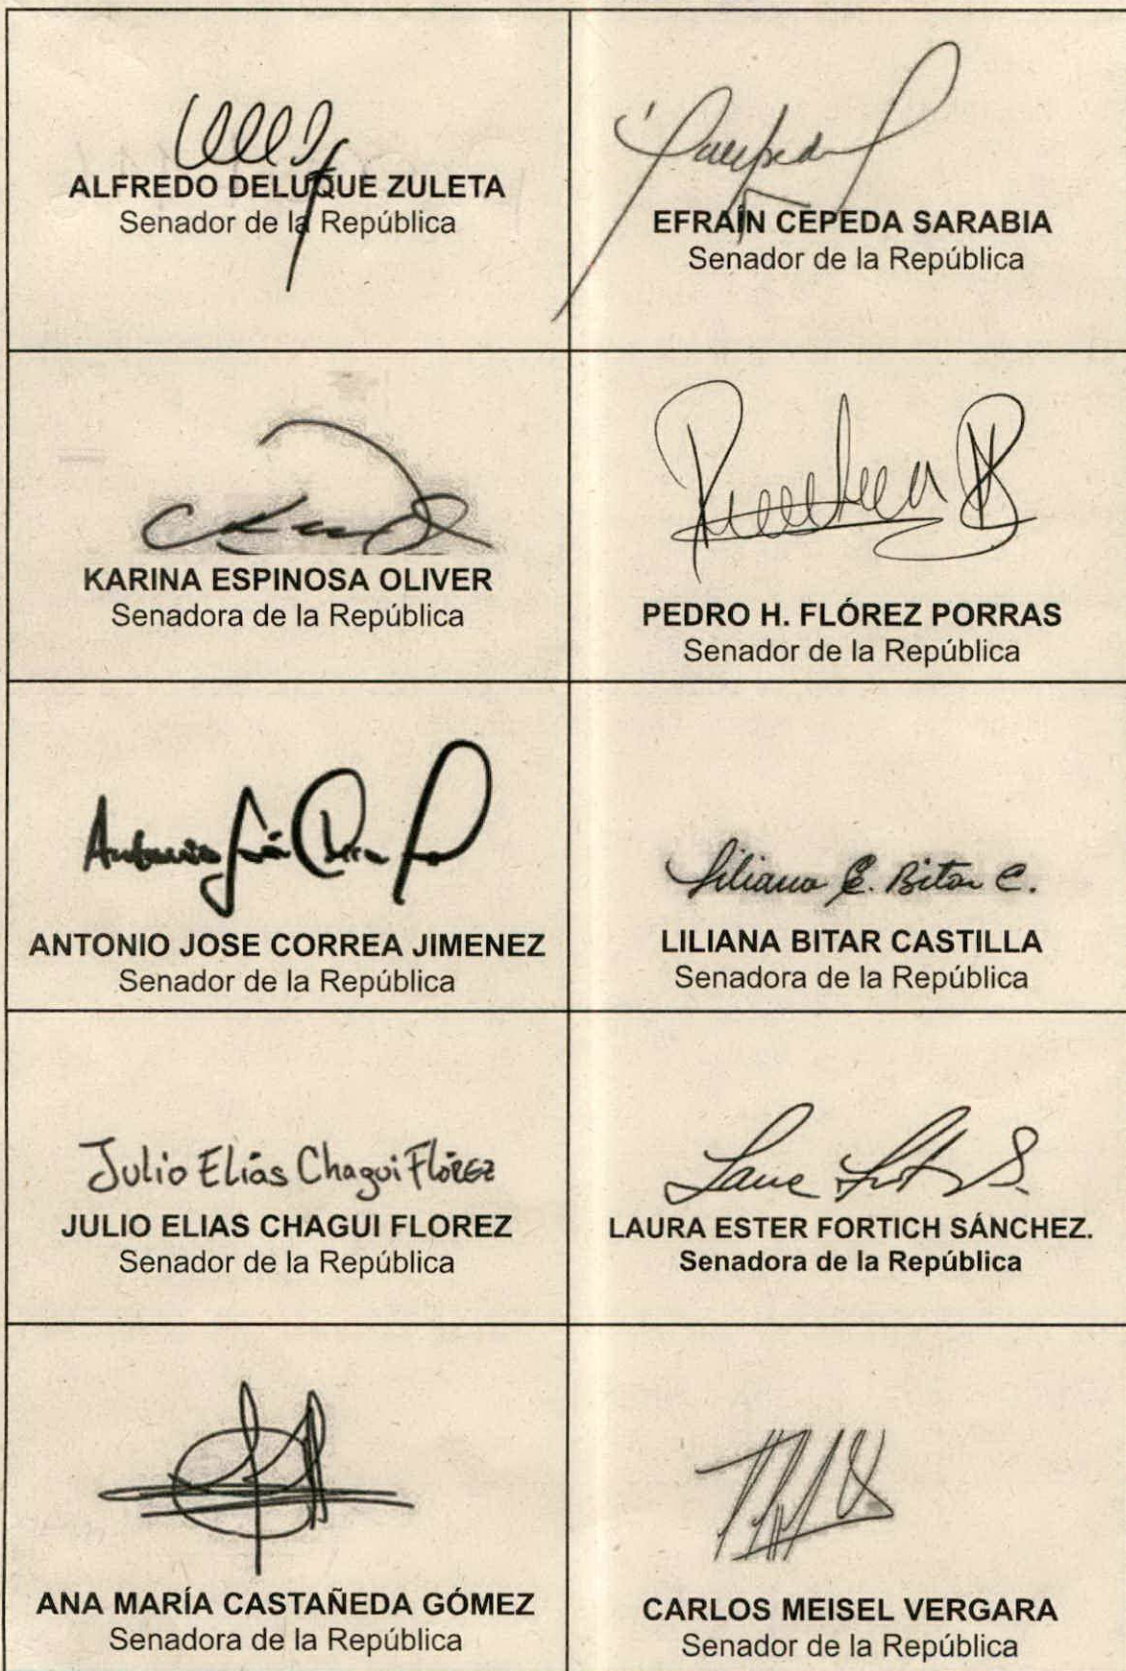 ALFREDO DELUQUE ZULETA
Senador de la República
EFRAÍN CEPEDA SARABIA
Senador de la República
KARINA ESPINOSA OLIVER
Senadora de la República
PEDRO H. FLÓREZ PORRAS
Senador de la República
Antonio José Correa
ANTONIO JOSE CORREA JIMENEZ
Senador de la República
Liliana E. Bitar C.
LILIANA BITAR CASTILLA
Senadora de la República
Julio Elías Chagui Flórez
JULIO ELIAS CHAGUI FLOREZ
Senador de la República
LAURA ESTER FORTICH SÁNCHEZ.
Senadora de la República
ANA MARÍA CASTAÑEDA GÓMEZ
Senadora de la República
CARLOS MEISEL VERGARA
Senador de la República